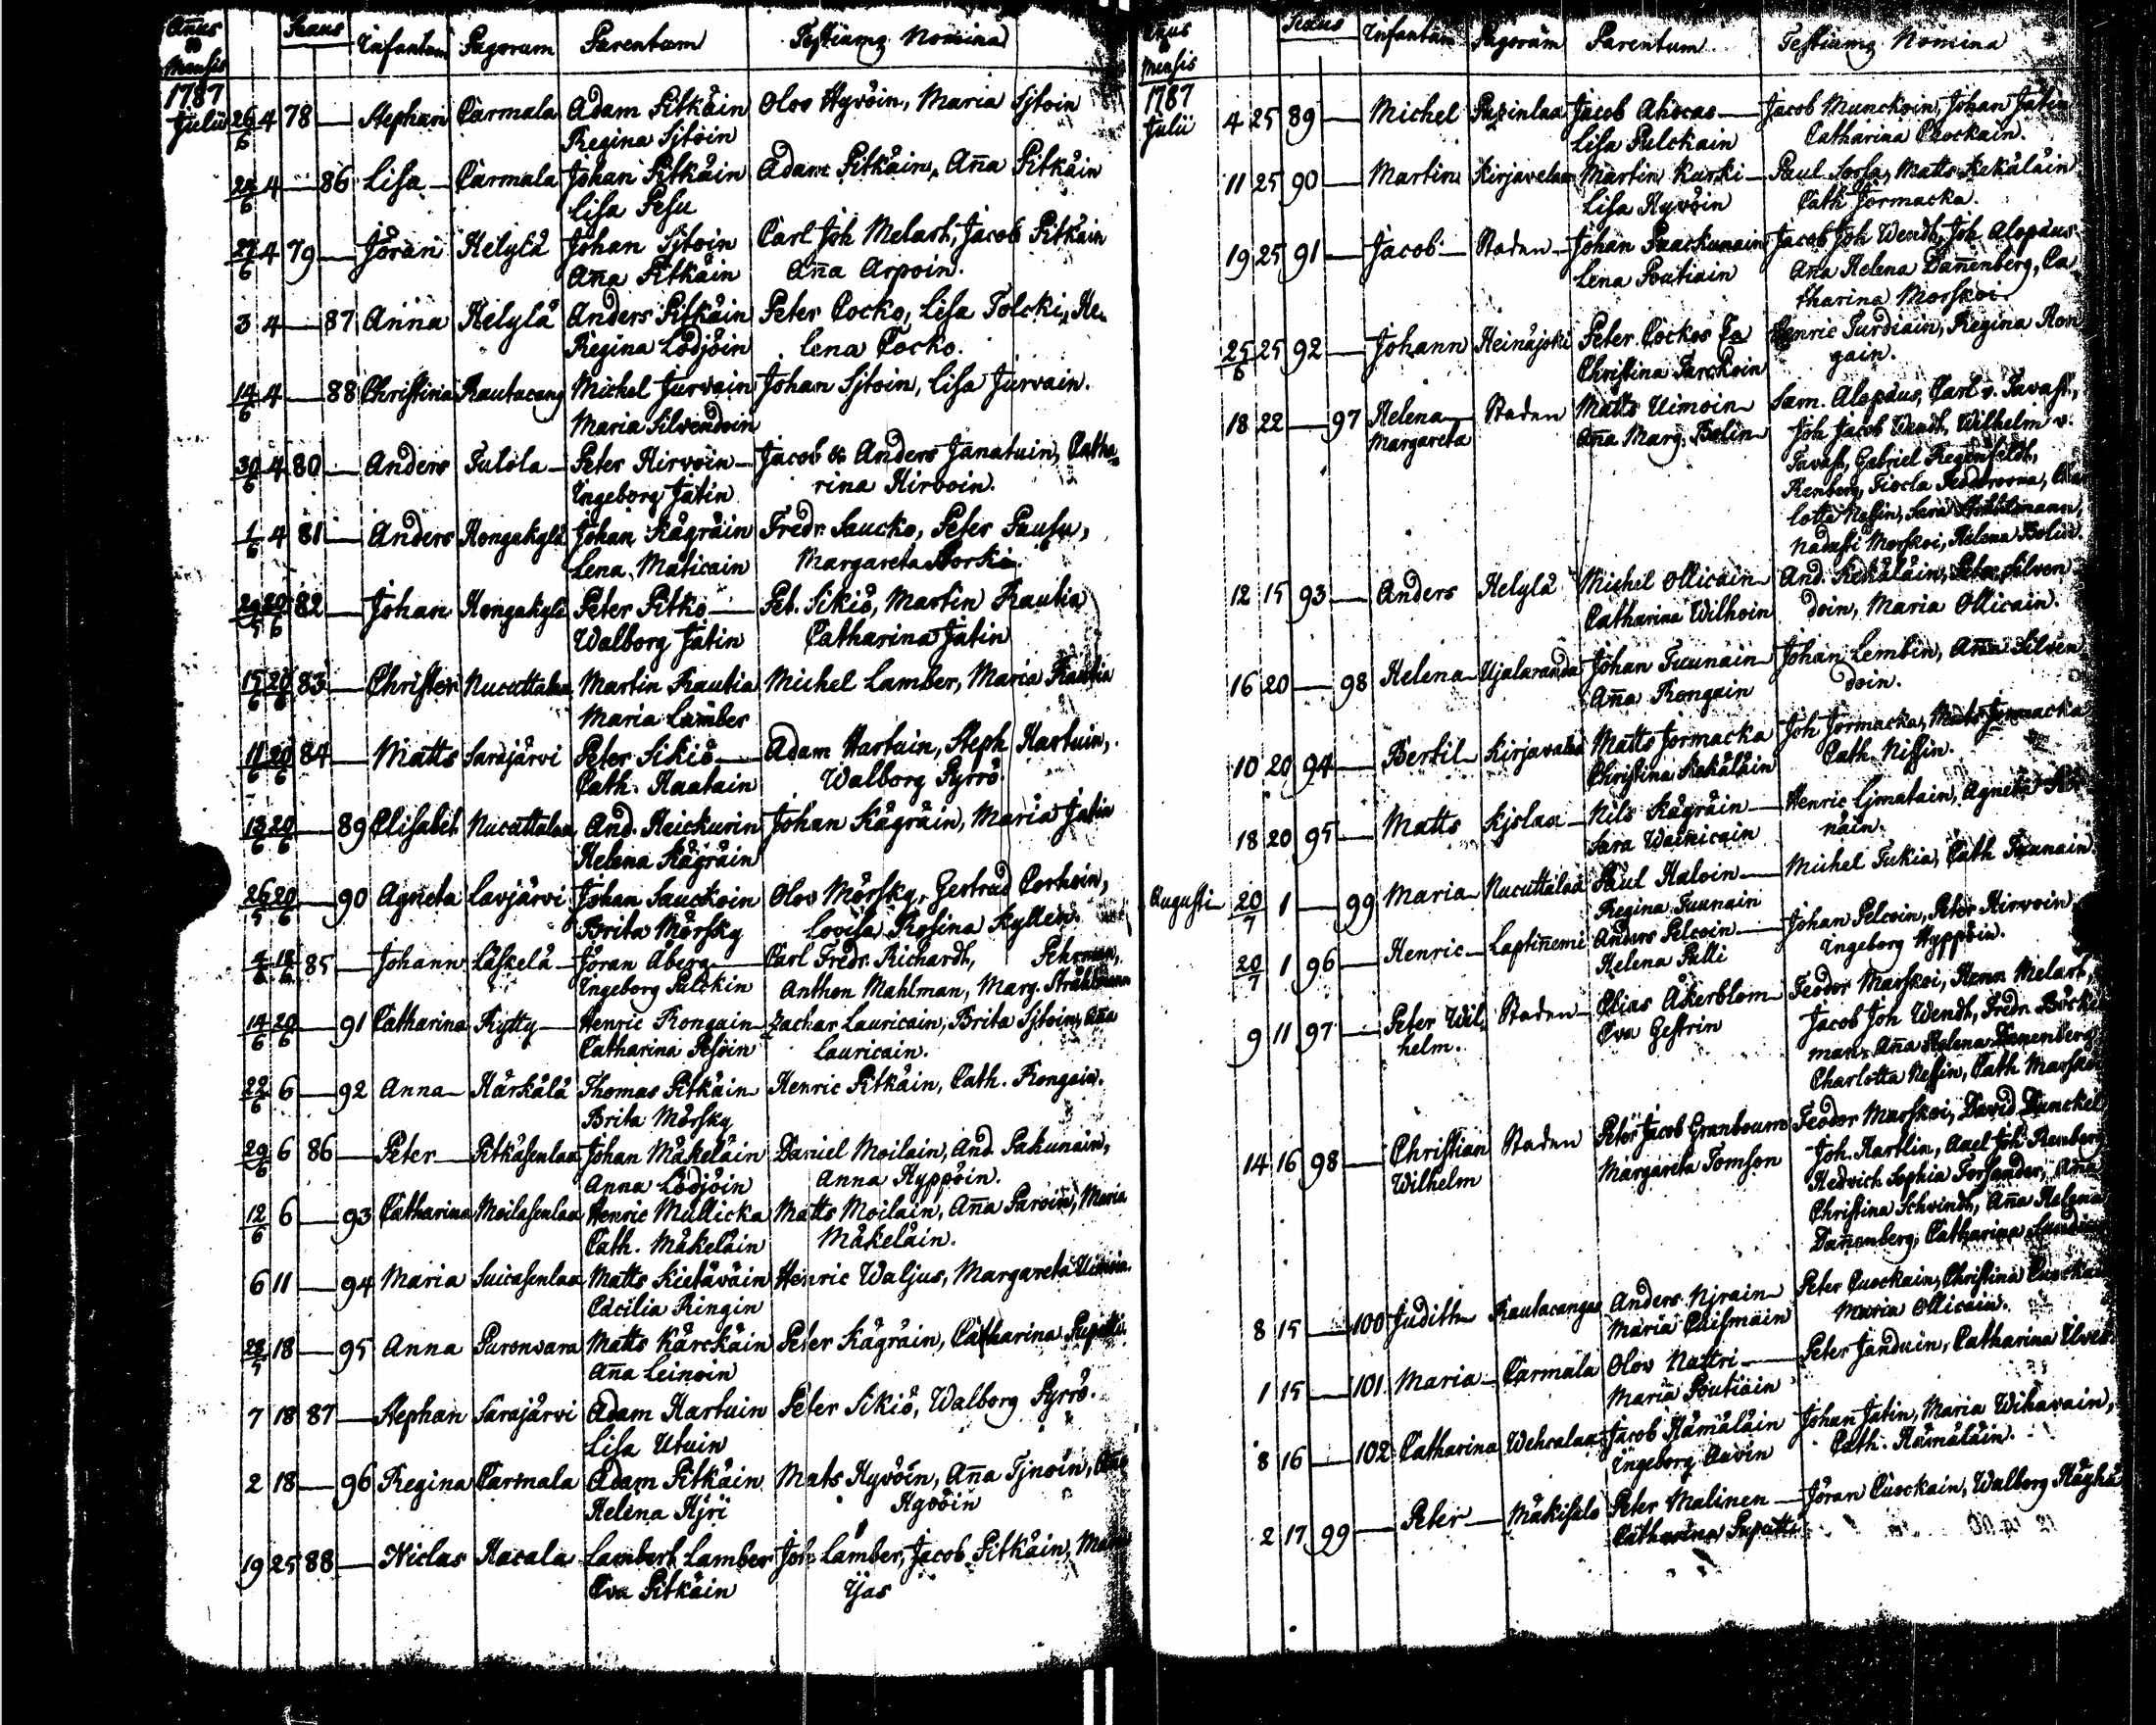 Añus & Mensis Sexus Infantum Pagorum Parentum Testiumq Nomina
1787
Julii 26/6 4 78 — Stephan Carmala Adam Pitkäin Olov Hyvöin, Maria Sjtoin
Regina Sjtoin
24/6 4 — 86 Lisa Carmala Johan Pitkäin Adam Pitkäin, Aña Pitkäin
Lisa Pesu
27/6 4 79 — Jöran Helylä Johan Sjtoin Carl Joh Melart, Jacob Pitkäin
Aña Pitkäin Aña Arpoin.
3 4 — 87 Anna Helylä Anders Pitkäin Peter Cocko, Lisa Tolcki, He-
Regina Lödjöin lena Cocko.
14/6 4 — 88 Christina Rautacang Michel Jurvain Johan Sjtoin, Lisa Jurvain.
Maria Silvendoin
30/6 4 80 — Anders Tulola Peter Hirvoin Jacob & Anders Janatuin, Catha-
Ingeborg Jätin rina Hirvoin.
1/6 4 81 — Anders Hongakylä Johan Kägräin Fredr. Saucko, Peter Pausu,
Lena Maticain Margareta Borki
29/5 20/6 82 — Johan Hongakylä Peter Pitko Pet. Sikiö, Martin Rautia
Walborg Jätin Catharina Jätin
15/6 20/6 83 — Christer Nucuttalaa Martin Rautia Michel Lamber, Maria Rautia
Maria Lamber
11/6 20/6 84 — Matts Sarajärvi Peter Sikiö Adam Hartuin, Steph Hartuin,
Cath. Raatain Walborg Pyrrö
13/6 20/6 — 89 Elisabet Nucuttalaa And. Heickurin Johan Kägräin, Maria Jätin
Helena Kägräin
26/5 20/6 — 90 Agneta Lavjärvi Johan Sauckoin Olov Mörsky, Gertrud Corhoin,
Brita Mörsky Lovisa Rosina Kyllen.
85 — Johann Läskelä Jöran Åberg Carl Fredr. Richardt, Pehrman,
Ingeborg Pulckin Anthon Mahlman, Marg. Stråhlmann
14/6 20/6 — 91 Catharina Rytty Henric Rongain Zachar Lauricain, Brita Sjtoin, Aña
Catharina Pesöin Lauricain.
22/6 6 — 92 Anna Härkälä Thomas Pitkäin Henric Pitkäin, Cath. Rongain.
Brita Mörsky
29/6 6 86 — Peter Pitkäsenlaa Johan Mäkeläin Daniel Moilain, And. Pakunain,
Anna Lödjöin Anna Hyppöin.
12/6 6 — 93 Catharina Moilasenlaa Henric Mullicka Matts Moilain, Aña Parvin, Maria
Cath. Mäkeläin Mäkeläin.
6 11 — 94 Maria Suicasenlaa Matts Kietäväin Henric Waljus, Margareta Uimoin.
Cæcilia Ringin
28/5 18 — 95 Anna Puronvara Matts Kärckäin Peter Kägräin, Catharina Puputti
Aña Leinoin
7 18 87 — Stephan Sarajärvi Adam Hartuin Peter Sikiö, Walborg Pyrrö.
Lisa Utuin
2 18 — 96 Regina Carmala Adam Pitkäin Mats Hyvöin, Aña Tjnoin,
Helena Hjri Hyvöin
19 25 88 — Niclas Hacala Lambert Lamber Joh Lamber, Jacob Pitkäin,
Eva Pitkäin Yjas
Añus & Mensis Sexus Infantum Pagorum Parentum Testiumq Nomina
1787
Julii 4 25 89 — Michel Jacob Ahocas Jacob Munckoin, Johan Jätin
Lisa Pulckain Catharina Cuockain.
11 25 90 — Martin Kirjavalaa Martin Kurki Paul Sorsa, Matts Kekäläin
Lisa Hyvöin Cath Jormacka.
19 25 91 — Jacob Staden Johan Paackunain Jacob Joh Wendt, Joh Alopæus
Lena Poutiain Aña Helena Dañenberg, Ca-
tharina Morskoi.
25/6 25 92 — Johann Heinäjoki Peter Cockos Henric Turdiain, Regina Ron
Christina Parckoin gain.
18 22 — 97 Helena Staden Matts Uimoin Sam. Alopæus, Carl v. Tavast,
Margareta Aña Marg. Bolin Joh Jacob Wendt, Wilhelm v.
Tavast, Gabriel Regenfeldt,
Renberg, Fiocla Feodorovna, Char
lotta Nessin, Sara Stråhlmann,
Nadasti Morskoi, Helena Bolin.
12 15 93 — Anders Helylä Michel Ollicain And. Kekäläin, Peter Silven
Catharina Wilhoin doin, Maria Ollicain.
16 20 — 98 Helena Ujalaranda Johan Tuunain Johan Lembin, Aña Silven
Aña Rongain doin.
10 20 94 — Bertil Kirjavalaa Matts Jormacka Joh Jormacka, Mats Jormacka
Christina Kekäläin Cath. Nissin.
18 20 95 — Matts Kjslaa Nils Kägräin Henric Ijmatain, Agneta
Sara Wäinicain näin.
Augusti 20/7 1 — 99 Maria Nucuttalaa Paul Haloin Michel Tukia, Cath Tuunain
Regina Tuunain
20/7 1 96 — Henric Laptiñemi Anders Pelcoin Johan Pelcoin, Peter Hirvoin
Helena Pulli Ingeborg Hyppöin.
9 11 97 — Peter Wil- Staden Elias Åkerblom Feodor Morskoi, Melart,
helm. Eva Gestrin Jacob Joh Wendt, Fredr. Böcker
man, Aña Helena Dañenberg
Charlotta Nessin, Cath Morskoi
14 16 98 — Christian Staden Peter Jacob Granboum Feodor Morskoi, David Dunckel
Wilhelm Margareta Tomson Joh. Hartlin, Axel Joh Renberg
Hedvich Sophia Forsander, Aña
Christina Schvindt, Aña Helena
Dañenberg, Catharina
8 15 — 100 Judith Rautacangas Anders Njrain Peter Cuockain, Christina Cuockain
Maria Cuismain Maria Ollicain.
1 15 — 101 Maria Carmala Olov Nattri Peter Janduin, Catharina
Maria Poutiain
8 16 — 102 Catharina Wehcalaa Jacob Hämäläin Johan Jätin, Maria Wihavain,
Ingeborg Cavin Cath. Hämäläin
2 17 99 — Peter Mäkisalo Peter Malinen Jöran Cuockain, Walborg
Catharina Puputti